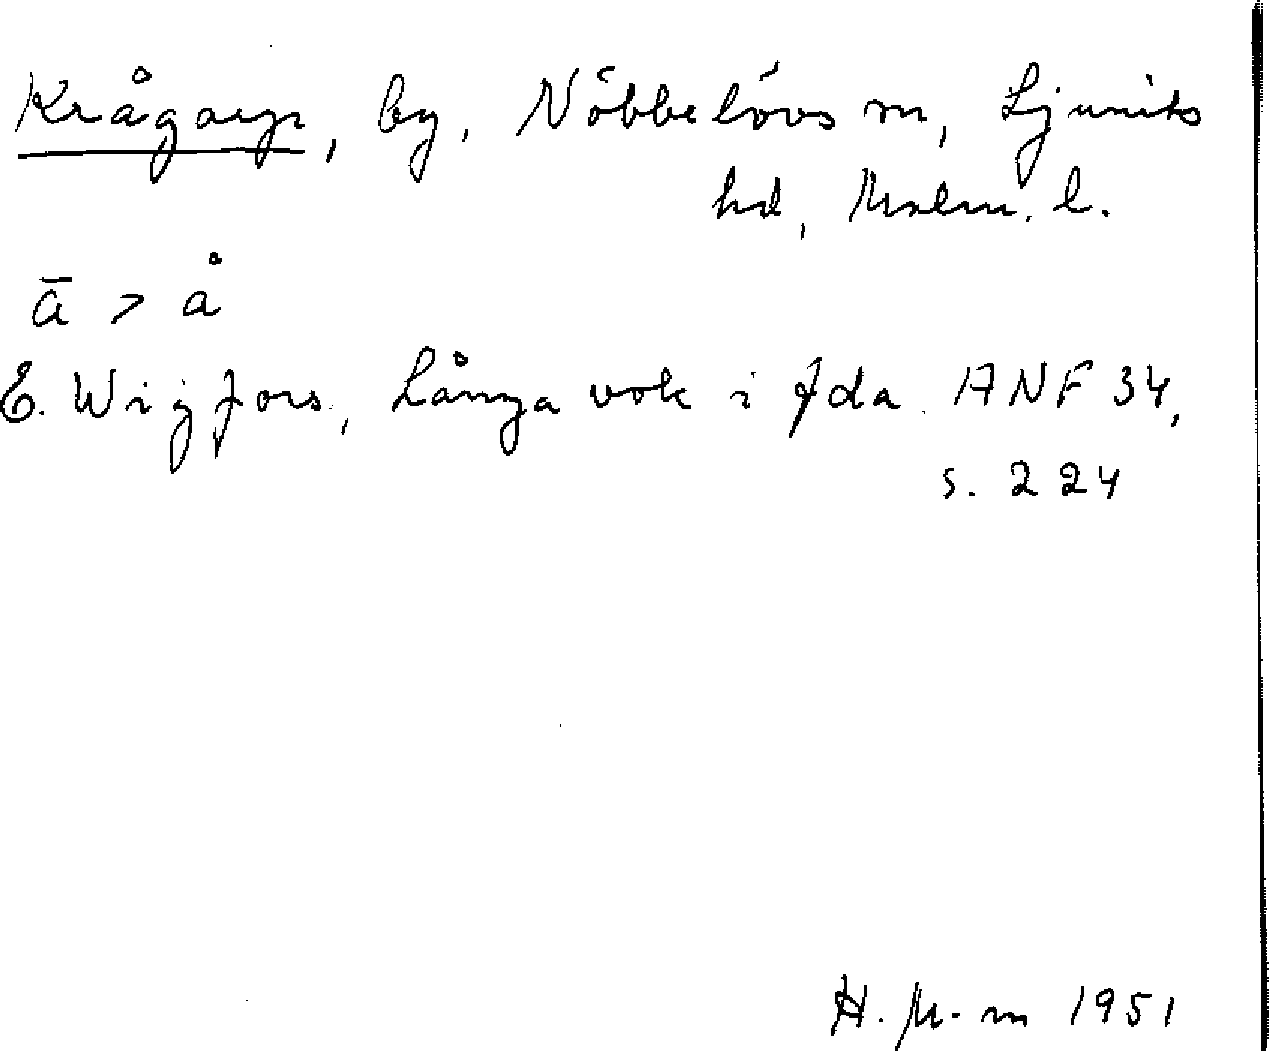 Krågarp, by, Nöbbelövs sn, Ljunits
hd, Malm. l.
ā > å
E. Wigfors, Långa vok i fda. ANF 34,
s. 224
H. M-m 1951